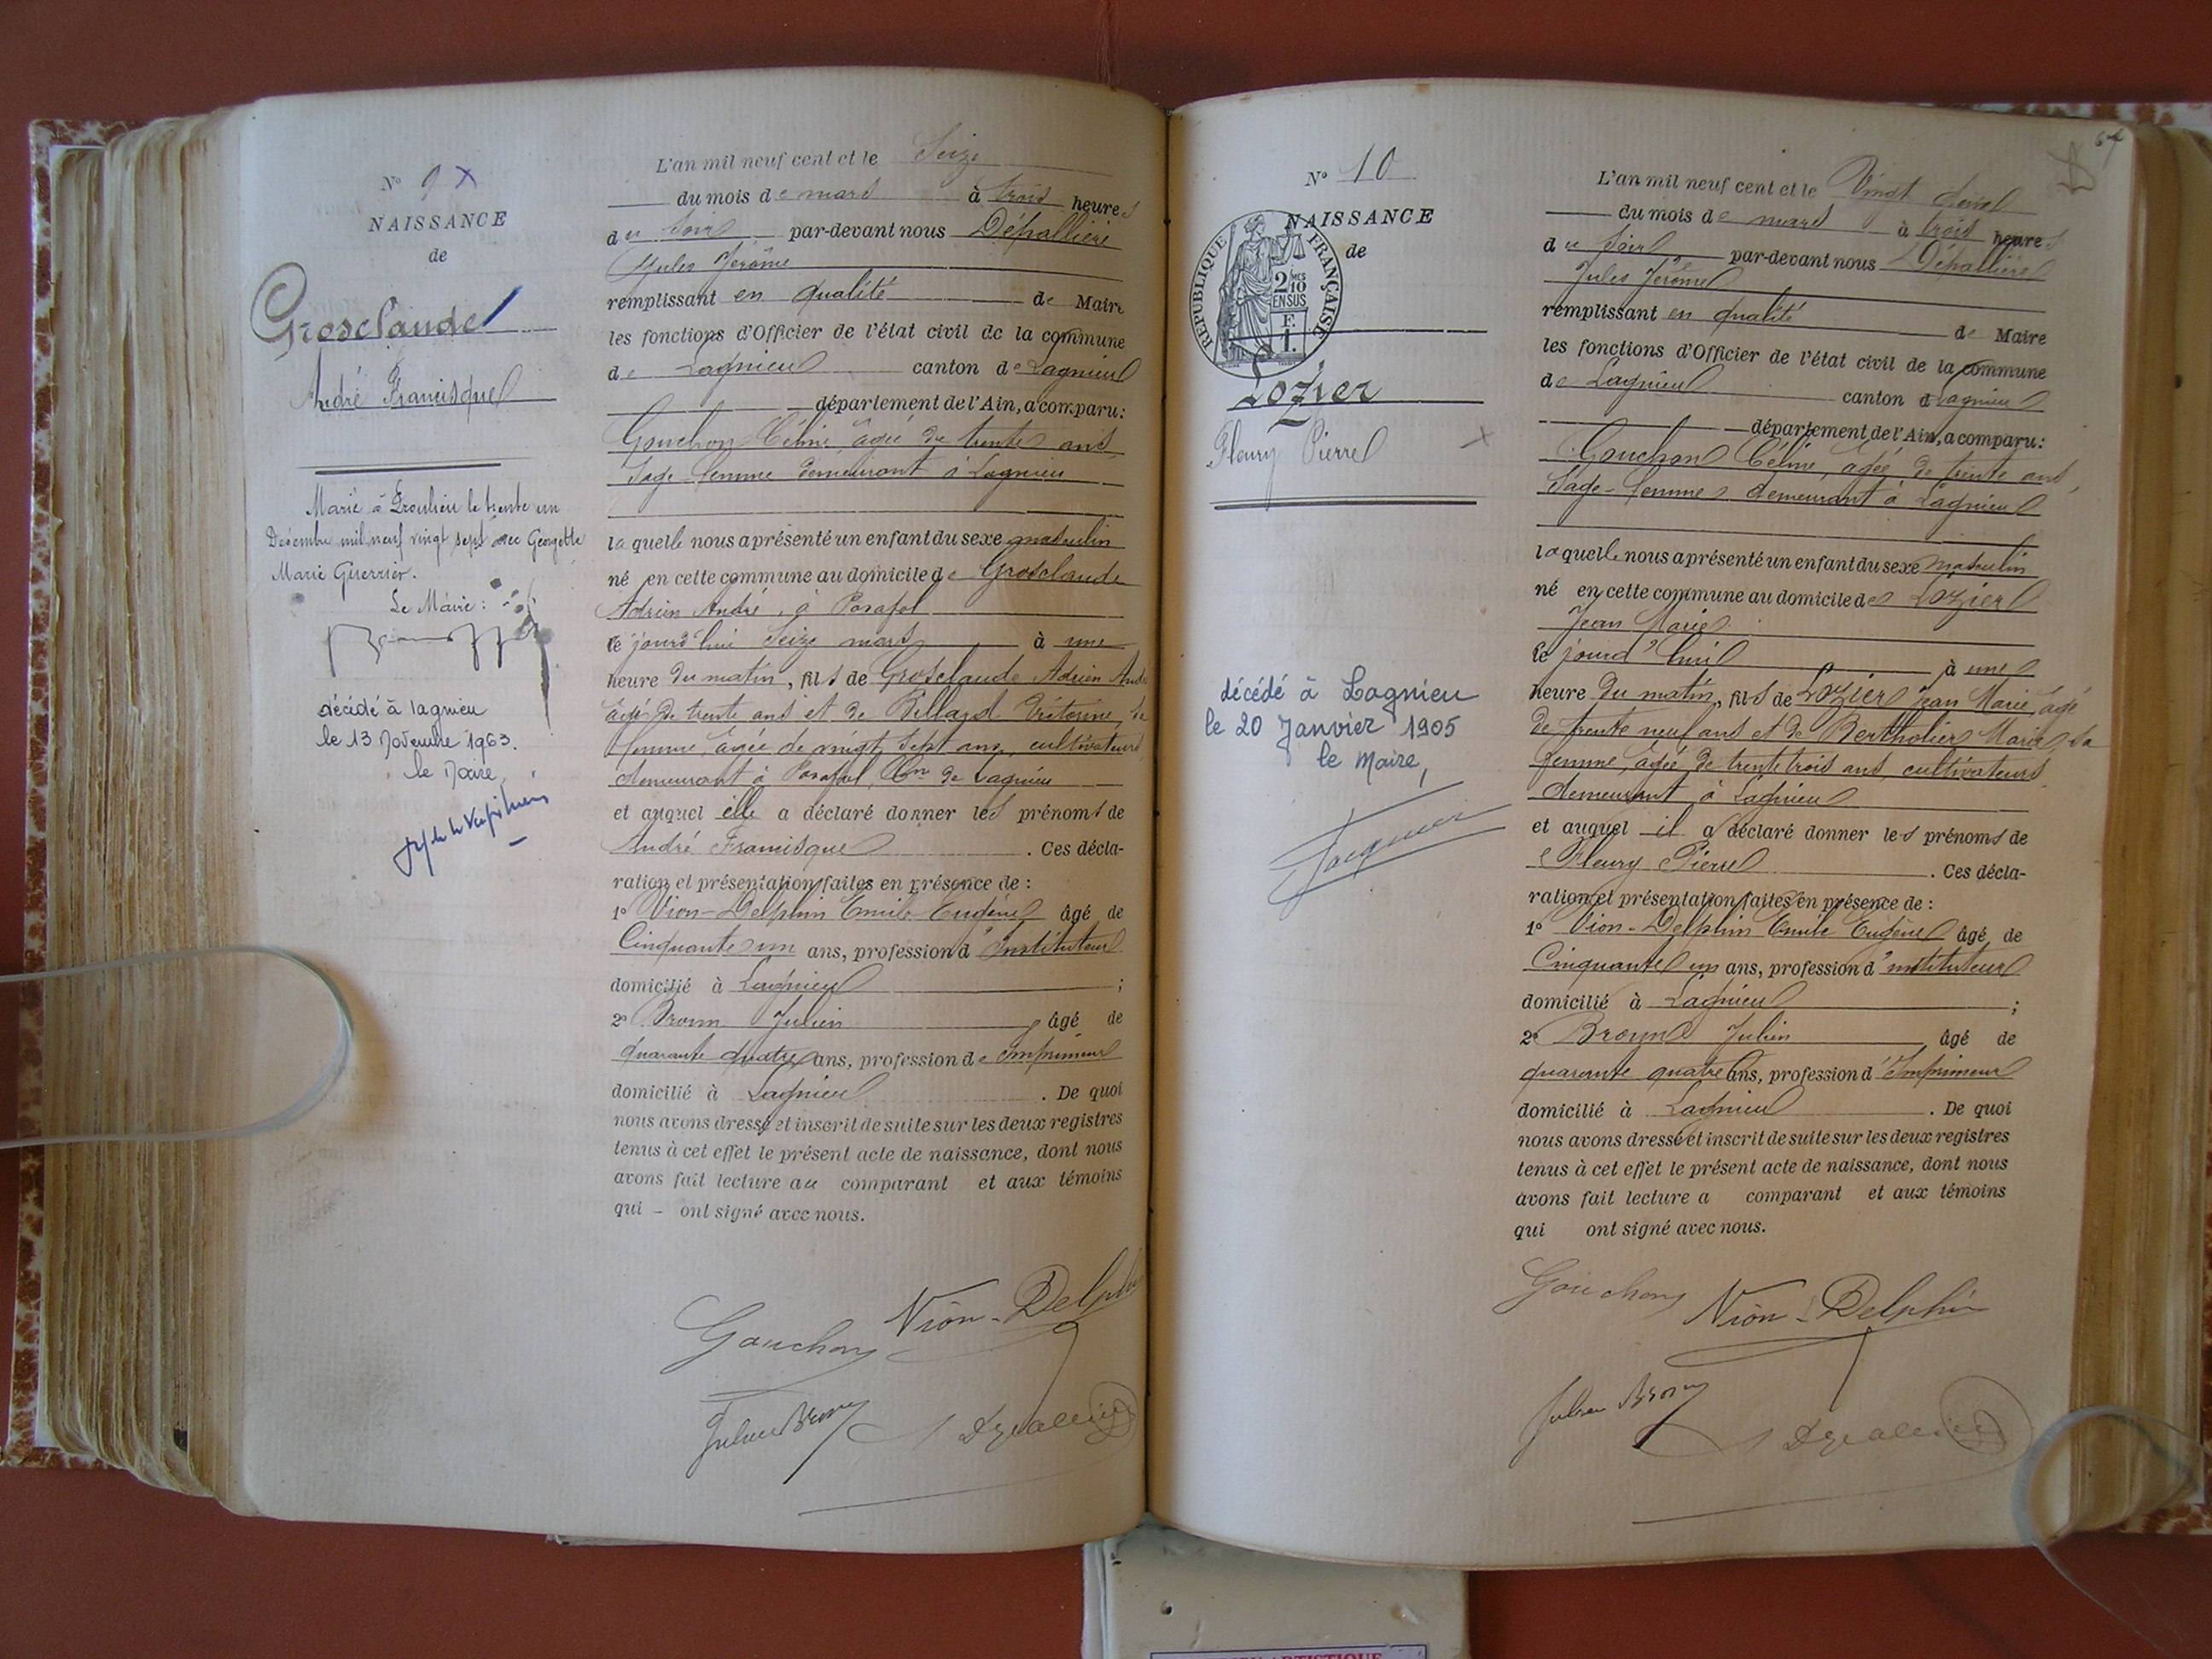 N° 9 X
NAISSANCE
de
Grosclaude
André Francisque
Marié à Proulieu le trente un
Décembre mil neuf vingt sept avec Georgette
Marie Guerrier.
Le Maire :
décédé à lagnieu
le 13 Novembre 1963.
le Maire,
L'an mil neuf cent et le Seize
du mois de mars à trois heures
du soir par-devant nous Dépallière
Jules Jérôme
remplissant en qualité de Maire
les fonctions d'Officier de l'état civil de la commune
de Lagnieu canton de Lagnieu
département de l'Ain, a comparu :
Gouchon Céline âgée de trente ans
Sage-femme demeurant à Lagnieu
laquelle nous a présenté un enfant du sexe masculin
né en cette commune au domicile de Grosclaude
Adrien André, à Posafol
ce jourd'hui seize mars à une
heure du matin, fils de Grosclaude Adrien André
âgé de trente ans et de Billard Victorine, sa
femme, âgée de vingt sept ans, cultivateurs
demeurant à Posafol, Cne de Lagnieu
et auquel elle a déclaré donner les prénoms de
André Francisque . Ces décla-
ration et présentation faites en présence de :
1° Vion-Delphin Emile Eugène âgé de
Cinquante un ans, profession d'Instituteur
domicilié à Lagnieu ;
2° Broun Julien , âgé de
quarante quatre ans, profession de imprimeur
domicilié à Lagnieu . De quoi
nous avons dressé et inscrit de suite sur les deux registres
tenus à cet effet le présent acte de naissance, dont nous
avons fait lecture au comparant et aux témoins
qui – ont signé avec nous.
Gouchon Vion-Delphin
Julien Broun
67
N° 10
NAISSANCE
de
RÉPUBLIQUE FRANÇAISE
2/10 MES
EN SUS
F.
1.
Lozier
Fleury Pierre X
décédé à Lagnieu
le 20 Janvier 1905
le Maire,
L'an mil neuf cent et le Vingt deux
du mois de mars à trois heures
du soir par-devant nous Dépallière
Jules Jérôme
remplissant en qualité de Maire
les fonctions d'Officier de l'état civil de la commune
de Lagnieu canton d Lagnieu
département de l'Ain, a comparu :
Gouchon Céline, âgée de trente ans,
Sage-femme demeurant à Lagnieu
laquelle nous a présenté un enfant du sexe masculin
né en cette commune au domicile de Lozier
Jean Marie
ce jourd'hui à une
heure du matin, fils de Lozier Jean Marie, âgé
de trente neuf ans et de Bertholier Marie, sa
femme, âgée de trente trois ans, cultivateurs
demeurant à Lagnieu
et auquel il a déclaré donner les prénoms de
Fleury Pierre . Ces décla-
ration et présentation faites en présence de :
1° Vion-Delphin Emile Eugène âgé de
Cinquante un ans, profession d'instituteur
domicilié à Lagnieu ;
2° Broun Julien âgé de
quarante quatre ans, profession d'Imprimeur
domicilié à Lagnieu . De quoi
nous avons dressé et inscrit de suite sur les deux registres
tenus à cet effet le présent acte de naissance, dont nous
avons fait lecture a comparant et aux témoins
qui ont signé avec nous.
Gouchon Vion-Delphin
Julien Broun